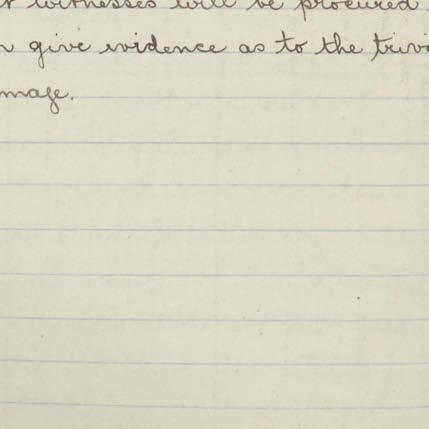 witnesses will be procured
give evidence as to the